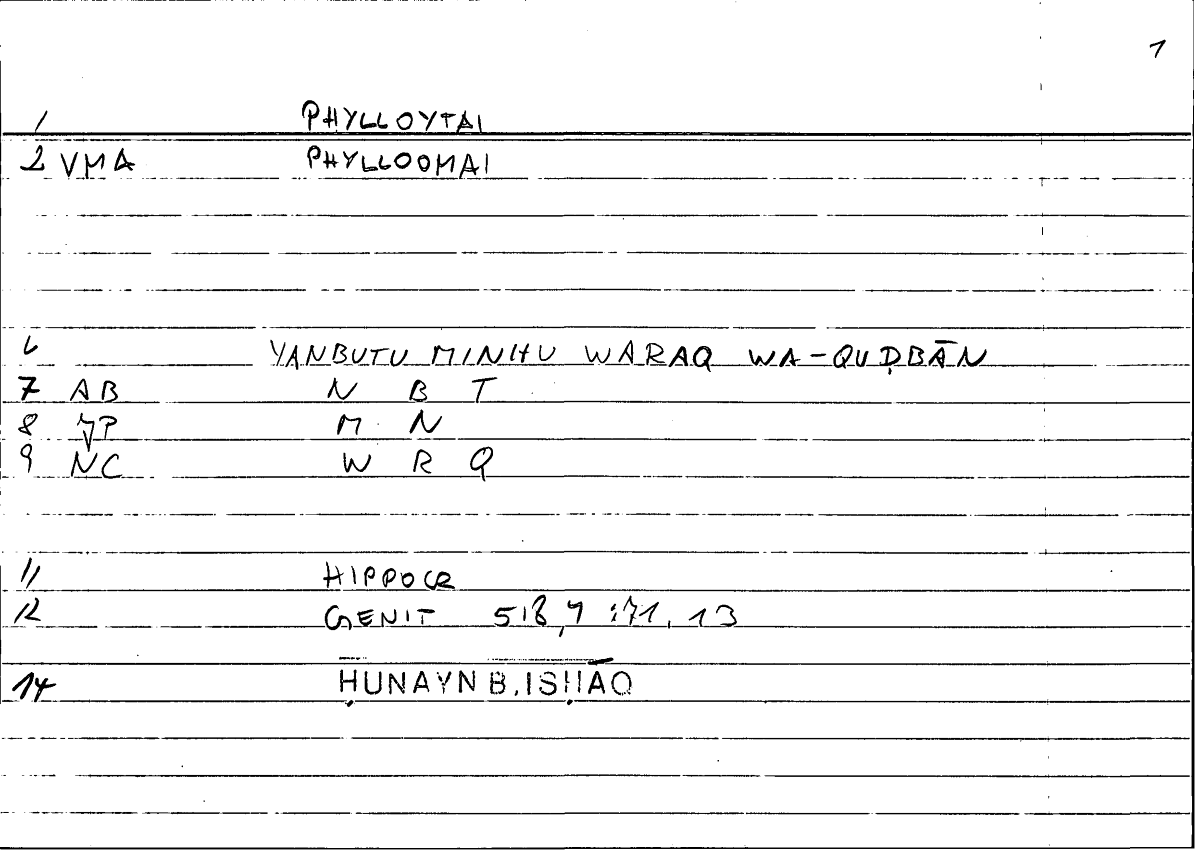 1
1 PHYLLOYTAI
2 VMA PHYLLOOMAI
6 YANBUTU MINHU WARAQ WA-QUḌBĀN
7 AB N B T
8 M N
9 NC W R Q
11 HIPPOCR
12 GENIT 518,7 :71,13
14 ḤUNAYN B. ISḤĀQ